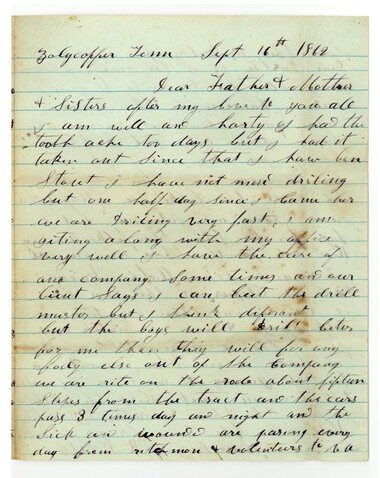 Zolycopper Tenn Sept 16th 1862
Dear Father & Mother
& Sisters after my love to you all
i am well and harty i had the
tooth ache too days but i had it
taken out since that i have ben
Stout i have not mist driling
but one half day since i came her
we are driling very fast i am
giting a long with my office
very well i have the care of
our company some times and our
Lieut Says i can beat the drill
master but i think diferant
but the boys will drill beter
for me then they will for any
body else out of the Company
we are rite on the rode about fifteen
Steps from the tract and the cars
pass 3 times day and night and the
Sick and wounded are pasing every
day from richmon & volunteers to va